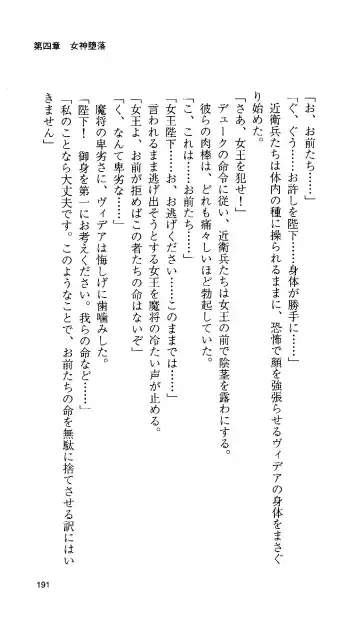 第四章　女神堕落
「お、お前たち……」
「ぐ、ぐう……お許しを陛下……身体が勝手に……」
近衛兵たちは体内の種に操られるままに、恐怖で顔を強張らせるヴィデアの身体をまさぐ
り始めた。
「さあ、女王を犯せ！」
デュークの命令に従い、近衛兵たちは女王の前で陰茎を露わにする。
彼らの肉棒は、どれも痛々しいほど勃起していた。
「こ、これは……お前たち……」
「女王陛下……お、お逃げください……このままでは……」
言われるまま逃げ出そうとする女王を魔将の冷たい声が止める。
「女王よ、お前が拒めばこの者たちの命はないぞ」
「く、なんて卑劣な……」
魔将の卑劣さに、ヴィデアは悔しげに歯噛みした。
「陛下！　御身を第一にお考えください。我らの命など……」
「私のことなら大丈夫です。このようなことで、お前たちの命を無駄に捨てさせる訳にはい
きません」
191